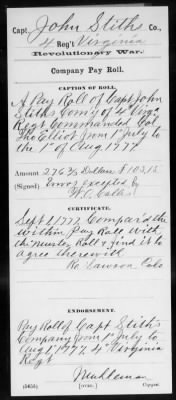 Capt. John Stiths Co.,
4 Reg't Virginia
Revolutionary War.
Company Pay Roll.
CAPTION OF ROLL.
A Pay Roll of Capt John
Stiths Comy of 4 Virg
Regt Commanded Col
Ro Elliot from 1st July to
the 1st of Aug 1777
Amount 276 2/3 Dollars
(Signed) Error excepted by
CERTIFICATE.
Sept 1 1777 Compair'd the
within Pay Roll, with
the Muster Roll & find it to
agree therewith
Ro Lawson Colo
ENDORSEMENT.
Pay Roll of Capt Stiths
Company from 1st July to
Aug 1st 1777 4th Virginia
Regt
Muhleman
[OVER.]
Copyist.